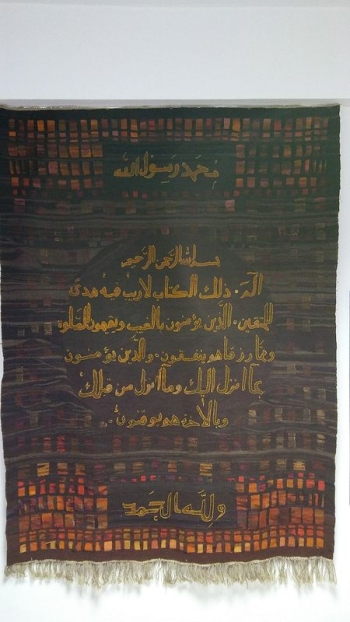 محمد رسول الله
بسم الله الرحمن الرحيم
الم . ذلك الكتاب لا ريب فيه هدى
للمتقين . الذين يؤمنون بالغيب ويقيمون الصلوة
ومما رزقناهم ينفقون . والذين يؤمنون
بما أنزل اليك وما أنزل من قبلك
وبالآخرة هم يوقنون .
ولله الحمد